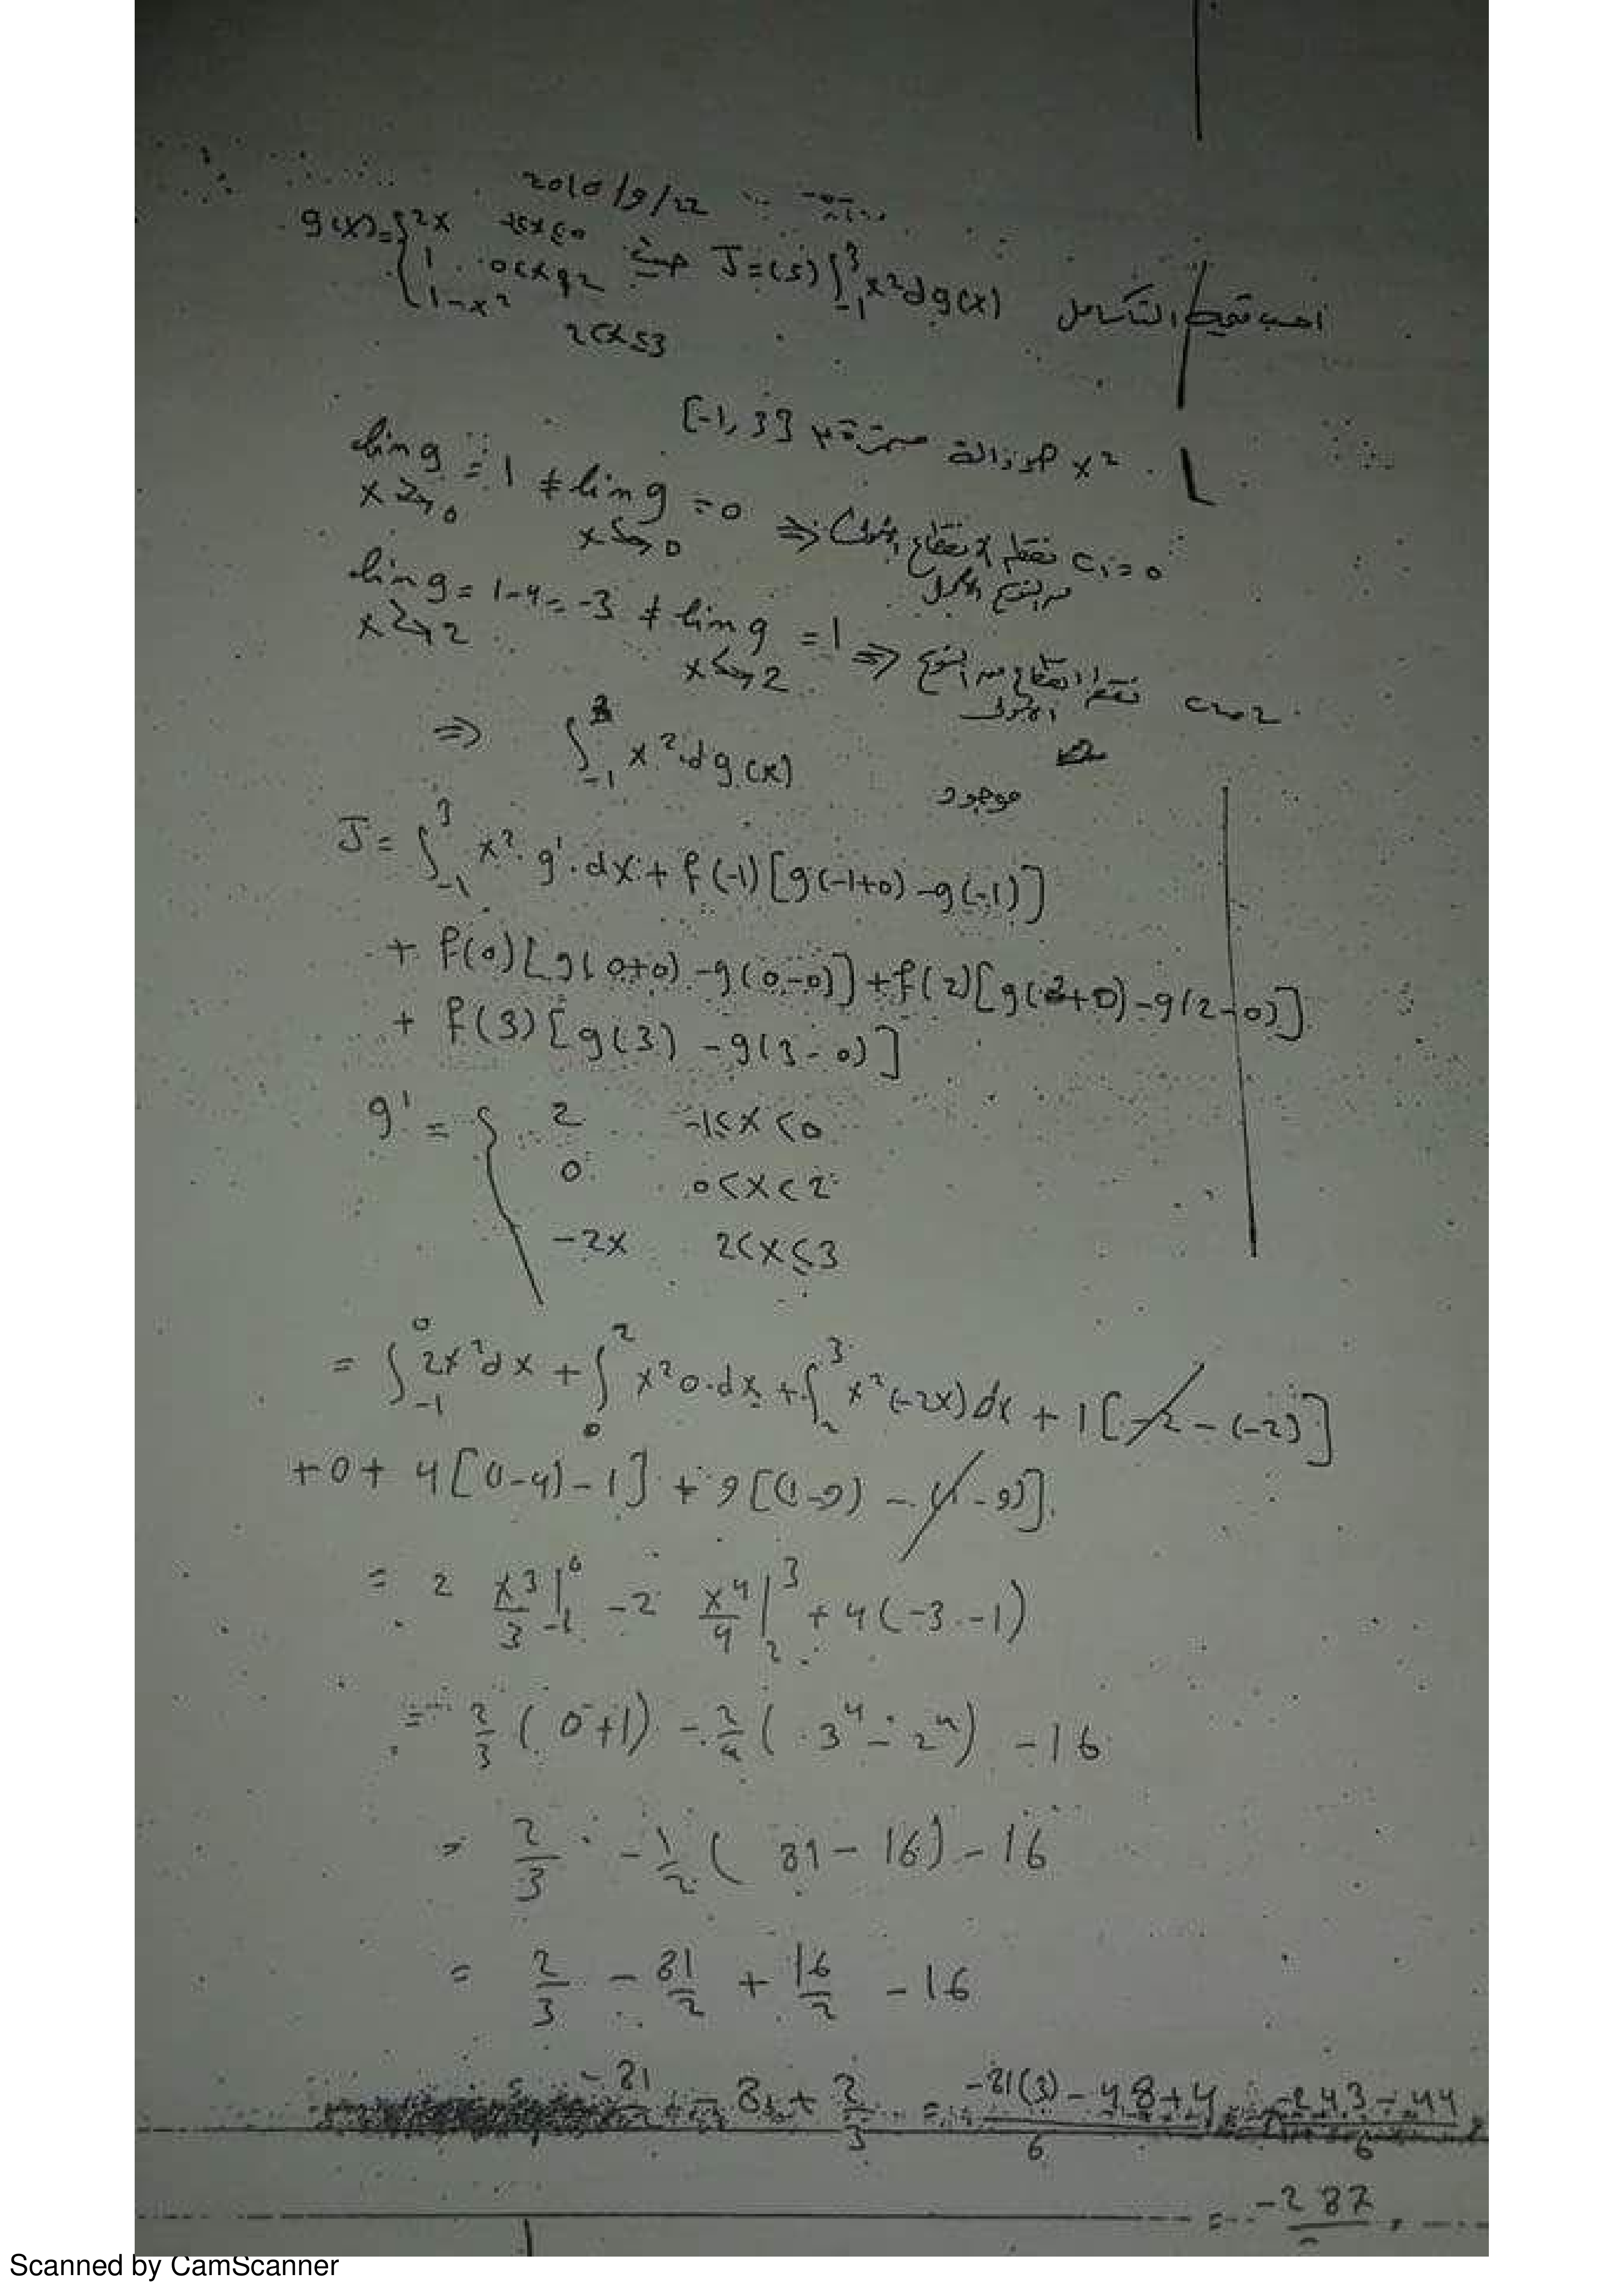 2010/9/22
احسب قيمة التكامل J=(S)∫_{-1}^{3} x²dg(x) حيث g(x)={2x
1 0<x≤2
1-x² 2<x≤3
x² هو دالة مستمرة [-1, 3]
lim g = 1 ≠ lim g = 0 ⇒ c₁=0 نقطة انقطاع
x→0 x→0
من النوع الأول
lim g = 1-4 = -3 ≠ lim g = 1 ⇒ نقطة انقطاع من النوع
x→2 x→2
الأول
⇒ ∫_{-1}^{3} x² dg(x)
موجود
J = ∫_{-1}^{3} x². g'. dx + f(-1)[g(-1+0) -g(-1)]
+ f(0)[g(0+0) -g(0-0)]+f(2)[g(2+0) -g(2-0)]
+ f(3)[g(3) -g(3-0)]
g' = { 2 -1<x<0
0 0<x<2
-2x 2<x≤3
= ∫_{-1}^{0} 2x²dx + ∫_{0}^{2} x²0.dx + ∫_{2}^{3} x²(-2x)dx + 1[-2-(-2)]
+0+ 4[(1-4)-1] + 9[(1-9) - (1-9)]
= 2 x³/3 |_{-1}^{0} -2 x⁴/4 |_{2}^{3} + 4(-3-1)
= 2/3 (0+1) - 2/4 (3⁴ - 2⁴) -16
= 2/3 - 1/2 (81-16) -16
= 2/3 - 81/2 + 16/2 -16
-81/2 - 8 + 2/3 = (-81(3) -48+4)/6 = (-243-44)/6
= -287